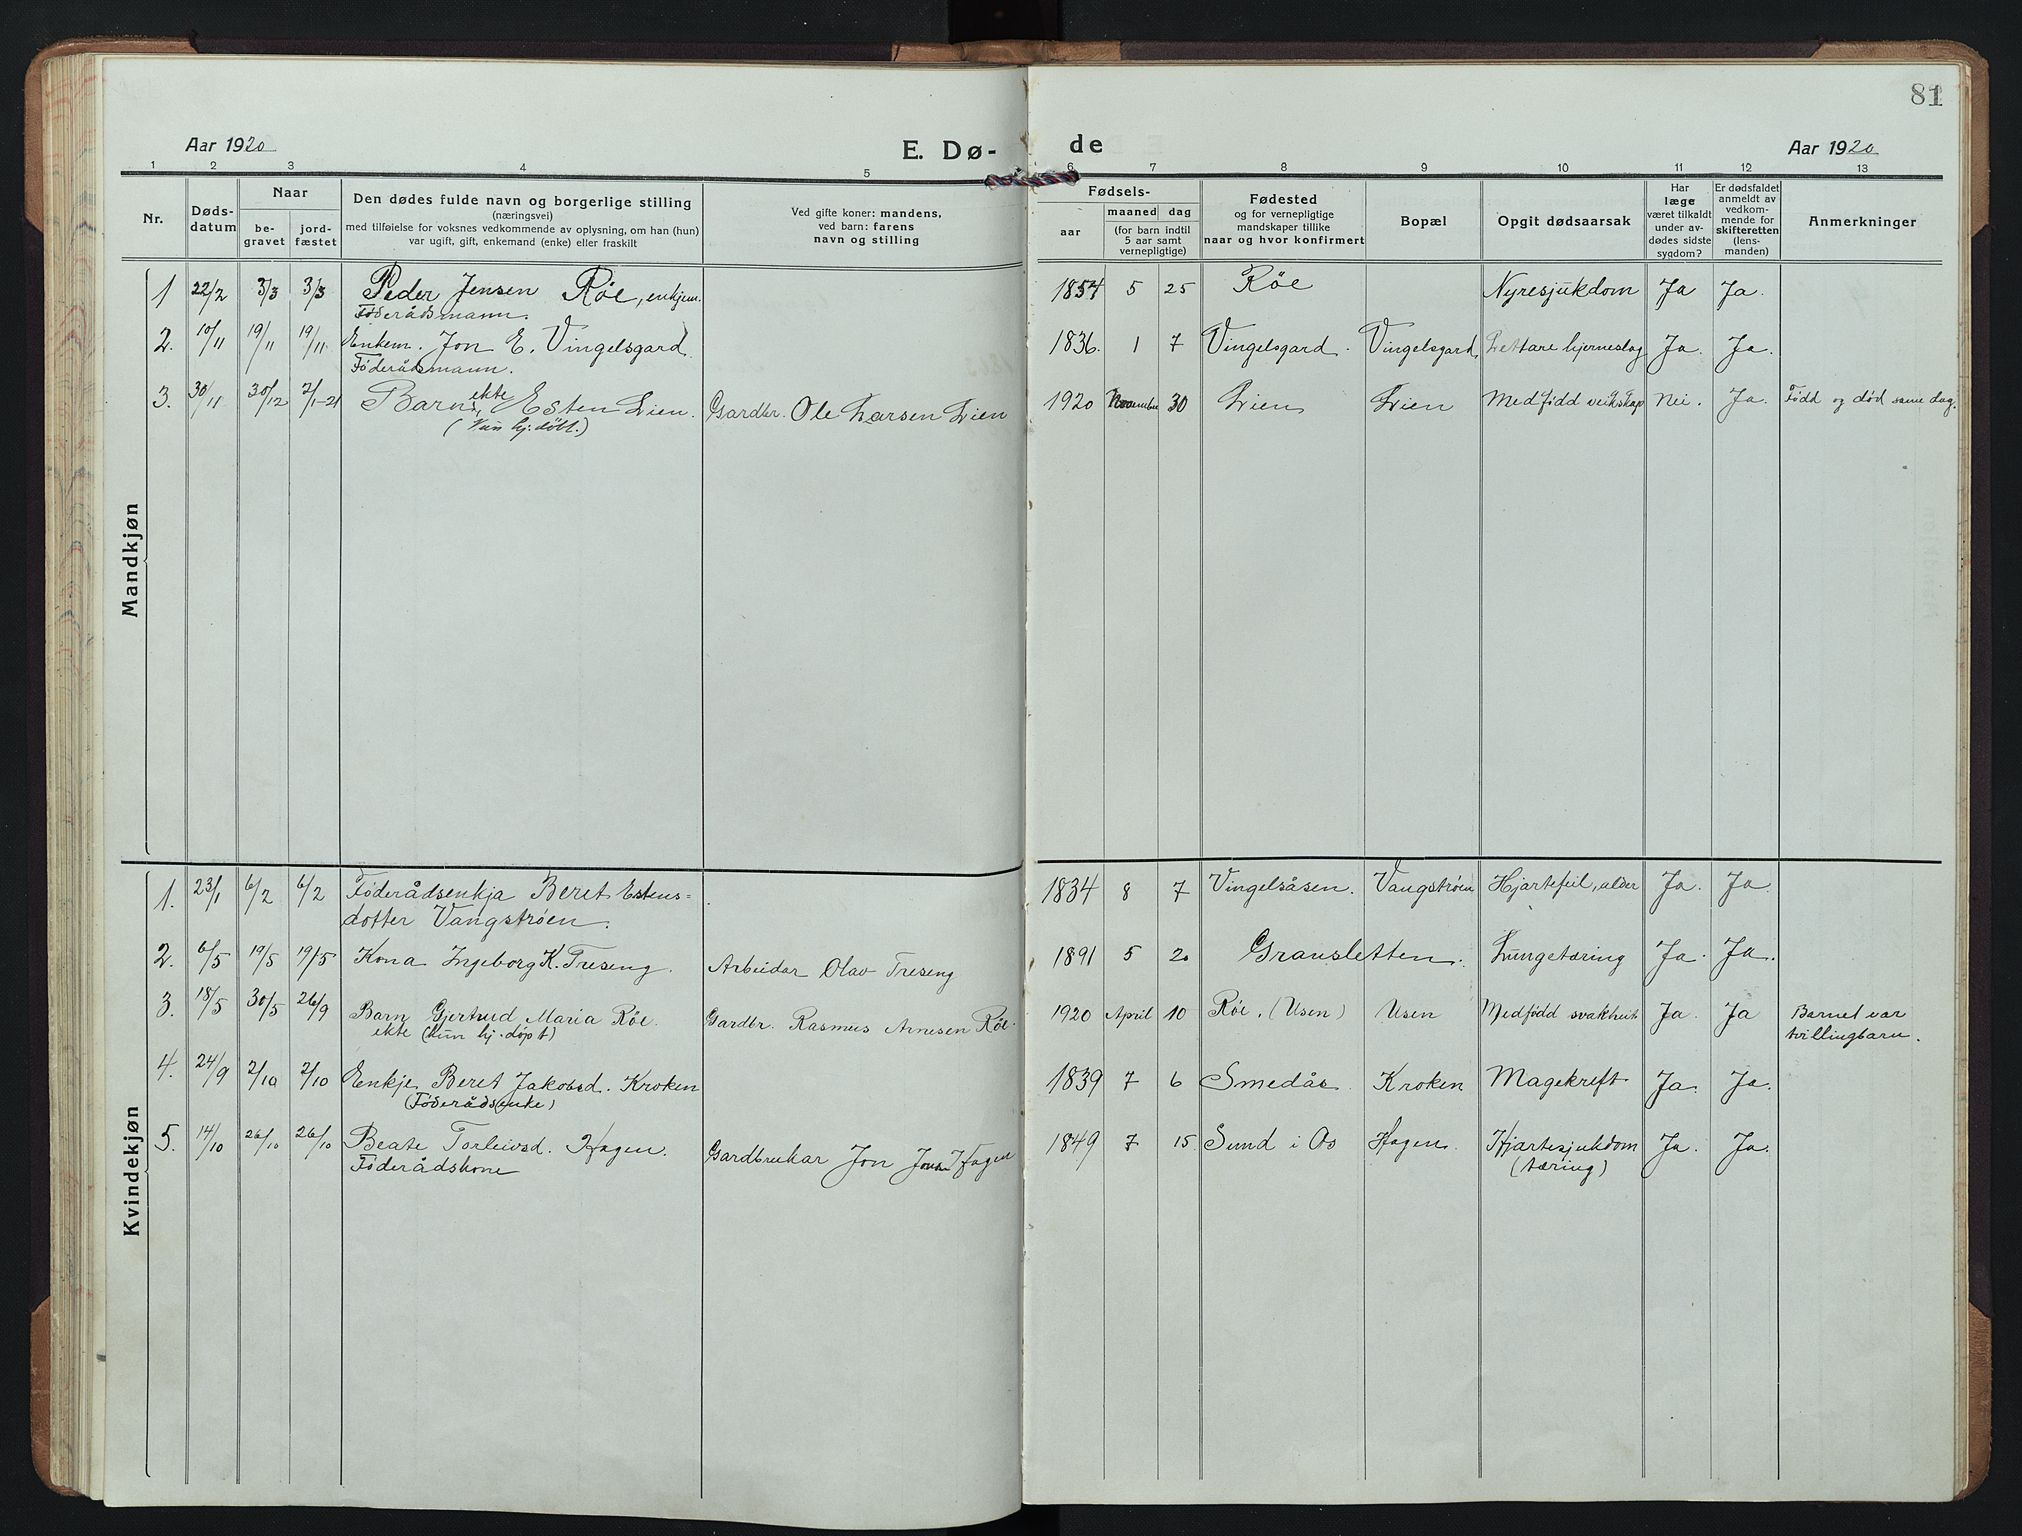 81
Aar 1920
E. Dø-
de
Aar 1920
1 2 3 4 5 6 7 8 9 10 11 12 13
Nr.
Døds-
datum
Naar
be-
gravet
jord-
fæstet
Den dødes fulde navn og borgerlige stilling
(næringsvei)
med tilføielse for voksnes vedkommende av oplysning, om han (hun)
var ugift, gift, enkemand (enke) eller fraskilt
Ved gifte koner: mandens,
ved barn: farens
navn og stilling
Fødsels-
aar
maaned dag
(for barn indtil
5 aar samt
vernepligtige)
Fødested
og for vernepligtige
mandskaper tillike
naar og hvor konfirmert
Bopæl
Opgit dødsaarsak
Har
læge
været tilkaldt
under av-
dødes sidste
sygdom?
Er dødsfaldet
anmeldt av
vedkom-
mende for
skifteretten
(lens-
manden)
Anmerkninger
Mandkjøn
1 22/2 3/3 3/3 Peder Jensen Røe, enkjem. 1854 5 25 Røe Nyresjukdom Ja Ja.
Føderådsmann.
2. 10/11 19/11 19/11 Enkem. Jon E. Vingelsgard 1836. 1 7 Vingelsgard. Vingelsgard hjerneslag Ja. Ja.
Føderådsmann.
3. 30/11 30/12 2/1-21 Barn ekte Esten Lien. Gardbr. Ole Larsen Lien 1920 November 30 Lien Lien Medfødd veikskap Nei. Ja. Fødd og død same dag.
(Nun hj. døbt.)
Kvindekjøn
1. 23/1 6/2 6/2 Føderådsenkja Beret Estens= 1834 8 7 Vingelsåsen. Vangstrøen Hjartefeil, alder Ja. Ja.
dotter Vangstrøen.
2. 6/5 19/5 19/5 Kona Ingeborg K. Treseng. Arbeidar Olav Treseng 1891 5 20 Gransletten. Lungetæring Ja. Ja.
3. 18/5 30/5 26/9 Barn Gjertrud Maria Røe. Gardbr. Rasmus Arnesen Røe. 1920 April 10 Røe. (Usen) Usen Medfødd svakheit Ja. Ja Barnet var
ekte (kun hj. døpt) tvillingbarn.
4. 24/9 2/10 2/10 Enkje Beret Jakobsd. Kroken 1839 7 6 Smedås Kroken Magekreft Ja. Ja.
(Føderådsenke)
5. 14/10 26/10 26/10 Beate Torleivsd. Hagen. Gardbrukar Jon Jonsen Hagen 1849 7 15 Sund i Os Hagen. Hjartesjukdom Ja. Ja.
Føderådskone (tæring)